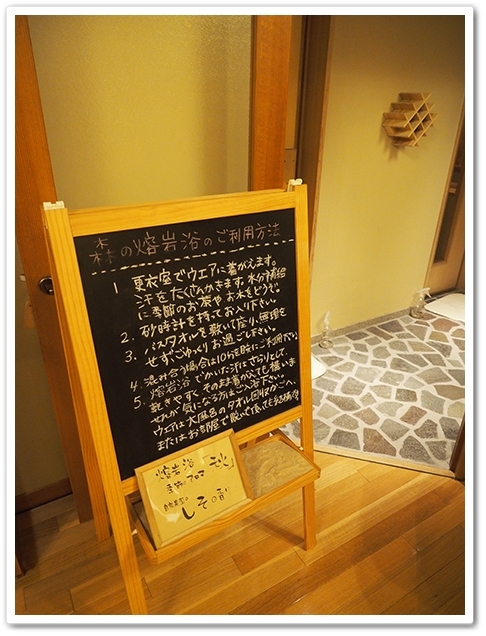 森の熔岩浴のご利用方法
1 更衣室でウエアに着がえます。
汗をたくさんかきます。水分補給
に季節のお茶やお水をどうぞ
2. 砂時計を持ってお入り下さい。
3. バスタオルを敷いて座り、無理を
せずごゆっくりお過ごし下さい。
4. 混み合う場合は10分を目安にご利用下さい
5. 熔岩浴でかいた汗はさらりとして、
乾きやすく、そのまま着がえても構いま
せんが気になる方はご入浴下さい。
ウエアは大風呂のタオル回収かごへ、
またはお部屋で脱いで頂いても結構です
熔岩浴
季節のアロマ
しその香り